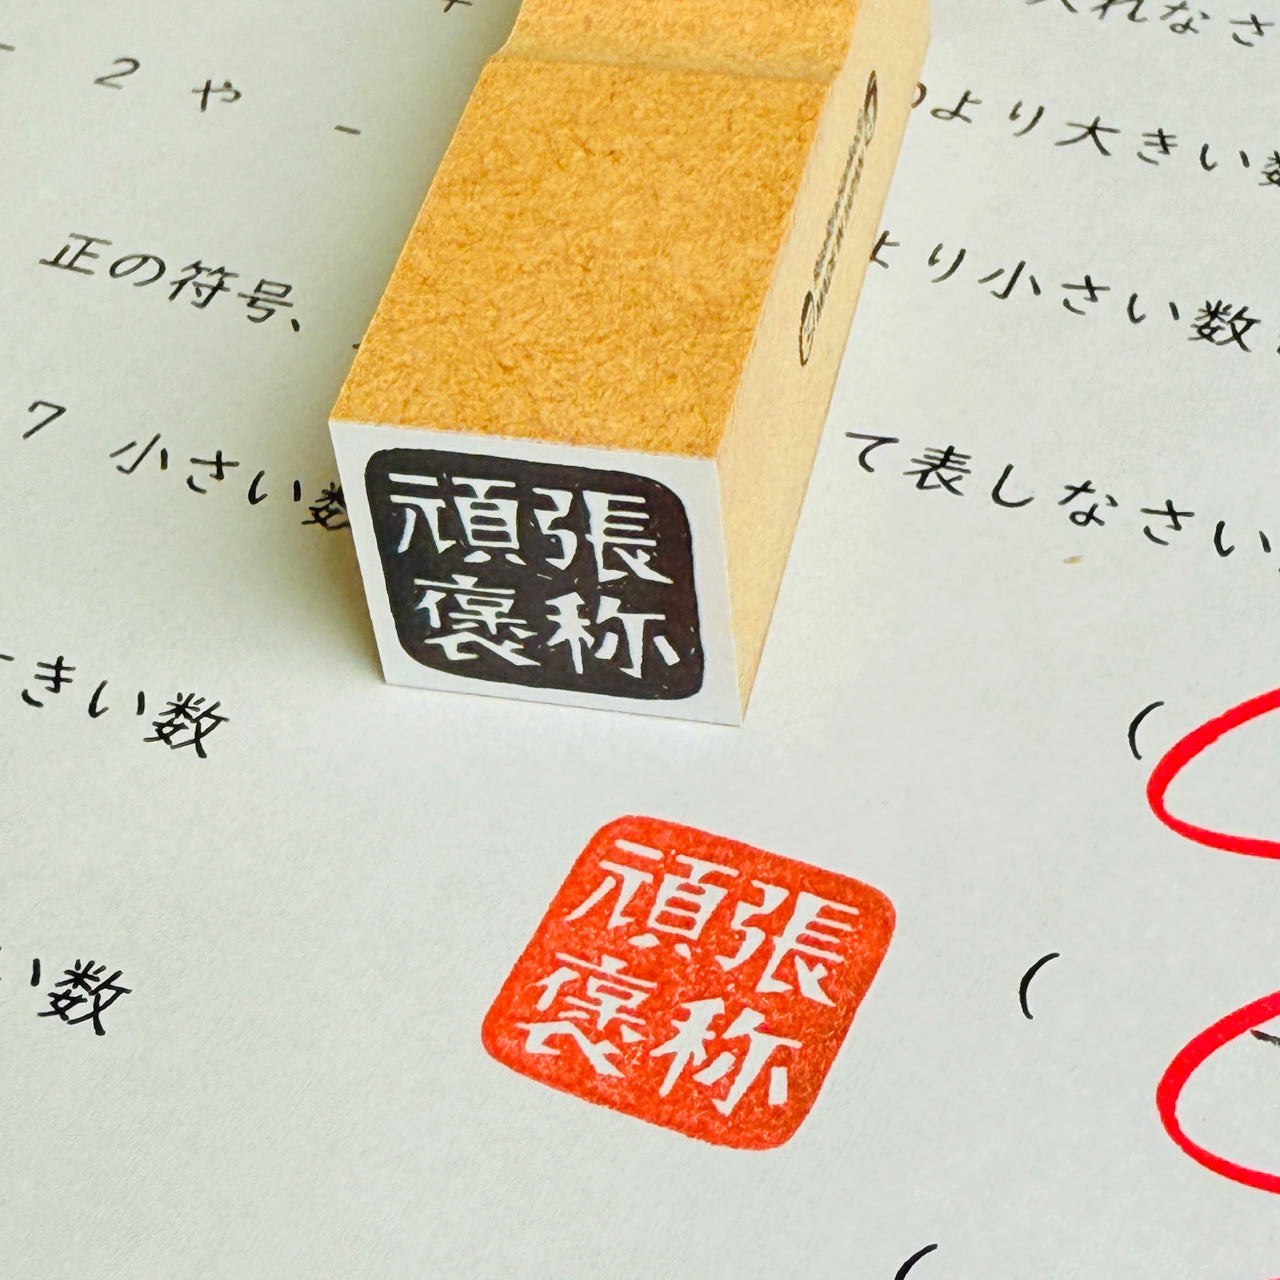 入れなさ
2 や -
より大きい数
正の符号、
より小さい数
7 小さい数
て表しなさい
頑張
褒称
きい数
(
頑張
褒称
い数
(
(